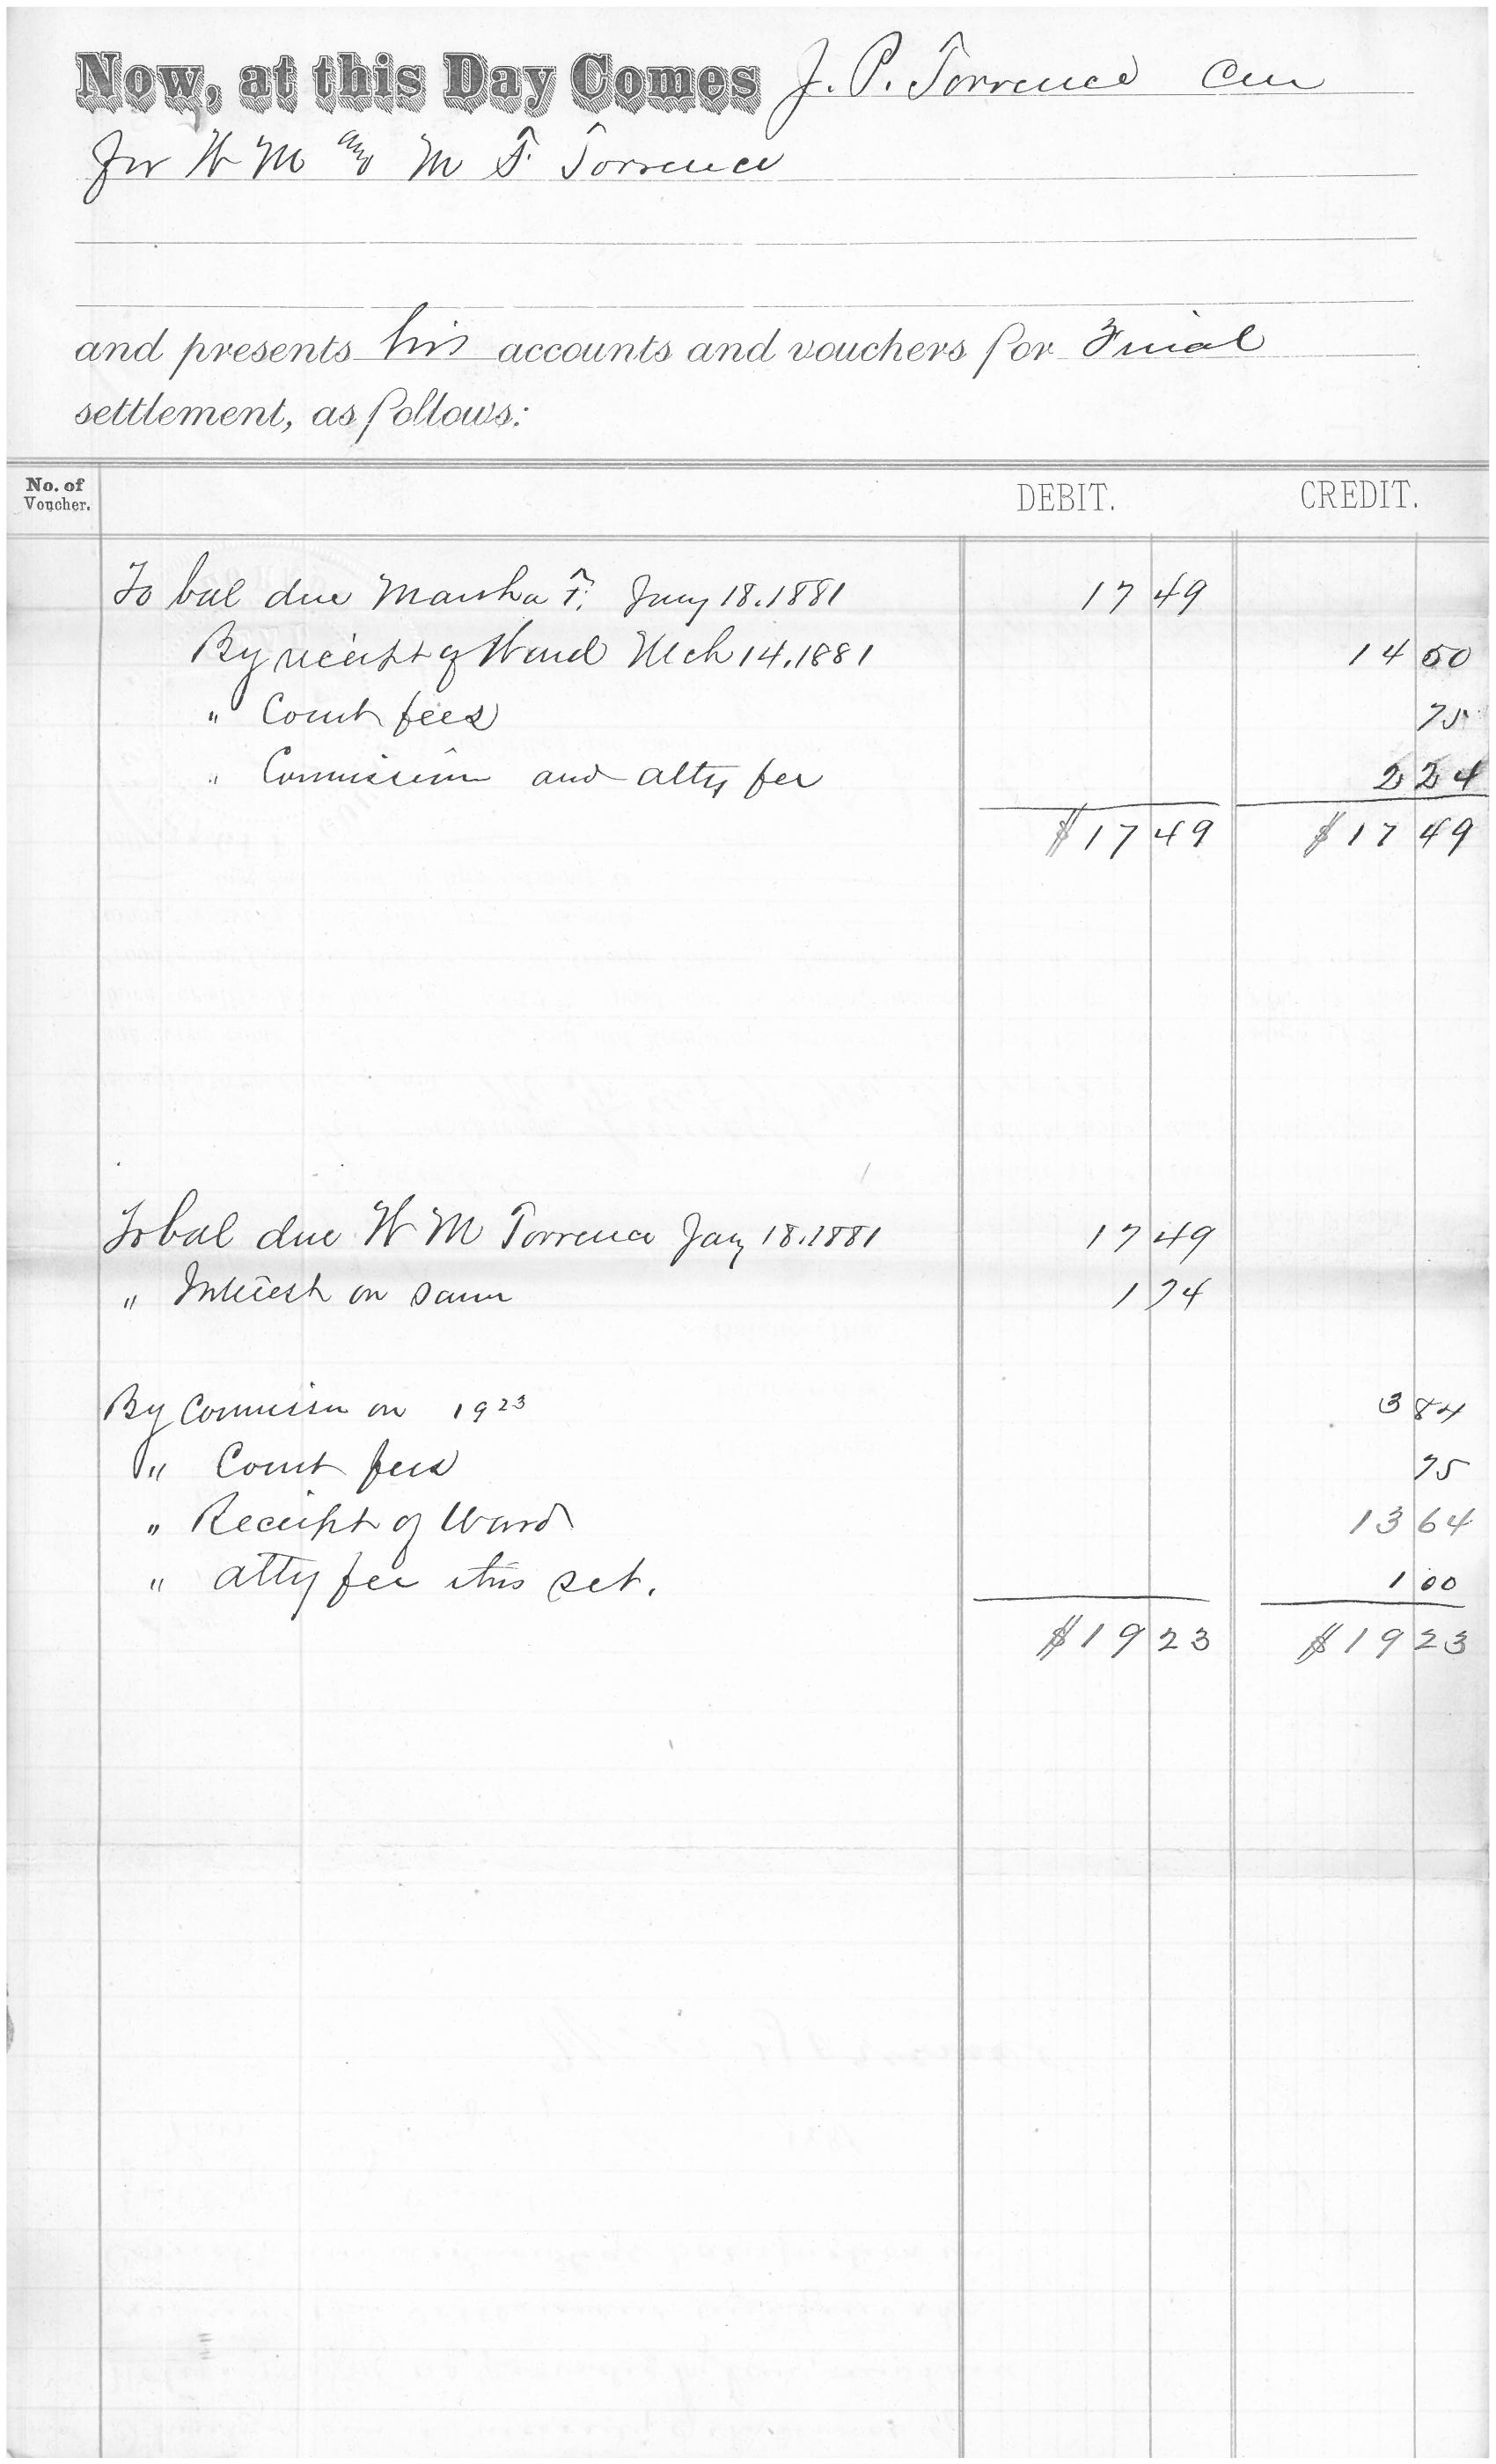 Now, at this Day Comes J. P. Torrence Cur
for W M and M F. Torrence
and presents his accounts and vouchers for Final
settlement, as follows:
No. of Voucher. DEBIT. CREDIT.
To bal due Martha F. Jany 18.1881 17 49
By receipt of Ward Mch 14.1881 14 50
" Court fees 75
" Commission and atty fee 2 24
$17 49 $17 49
To bal due W M Torrence Jany 18.1881 17 49
" Interest on same 1 74
By Commissn on 19 23 3 84
" Court fees 75
" Receipt of Ward 13 64
" atty fee this set. 1 00
$19 23 $19 23